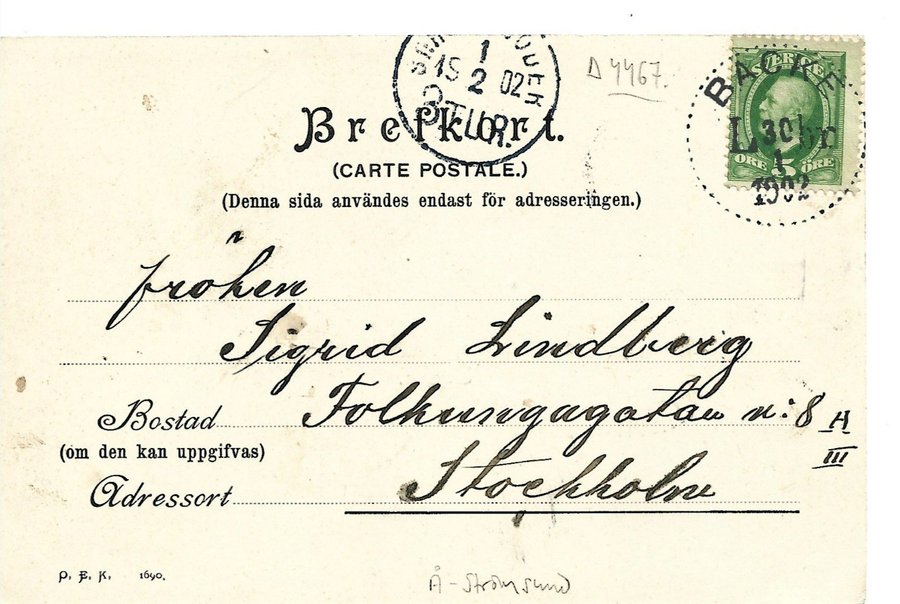 1
15 2 02
2.TUR.
D 4467.
SVERIGE
BACKE
L 30 br
1
1902
ÖRE 5 ÖRE
Brefkort.
(CARTE POSTALE.)
(Denna sida användes endast för adresseringen.)
fröken
Sigrid Lindberg
Bostad Folkungagatan n:8 A
(om den kan uppgifvas) III
Adressort Stockholm
P. E. K. 1690.
Å-Strömsund